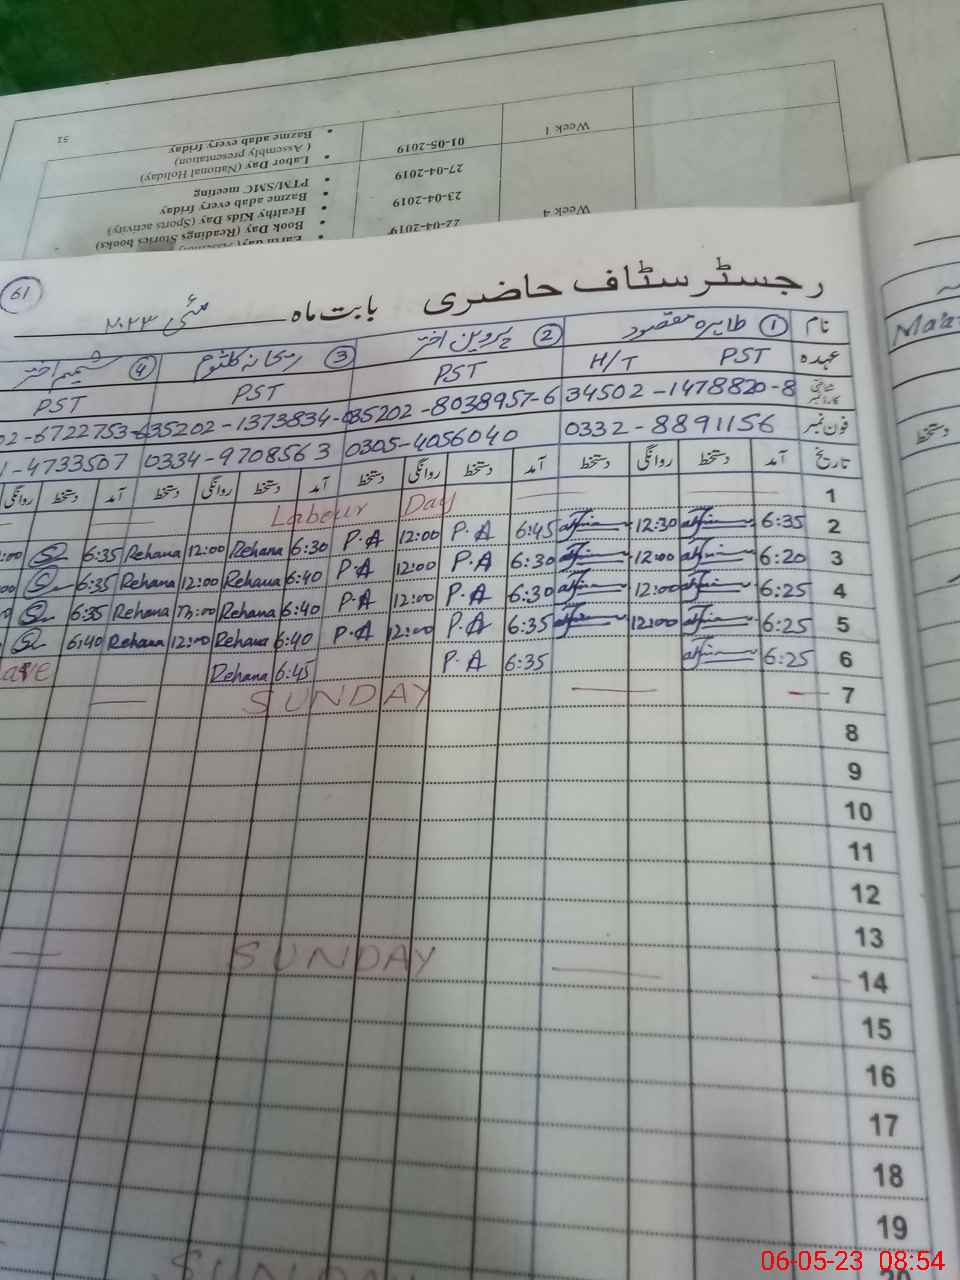 51
Week 1
01-05-2019
• Bazme adab every friday
( Assembly presentation)
• Labor Day (National Holiday)
27-04-2019
• PTM/SMC meeting
• Bazme adab every friday
23-04-2019
• Healthy Kids Day (Sports activity)
Week 4
22-04-2019
• Book Day (Readings Stories books)
61
رجسٹر سٹاف حاضری بابت ماہ مئی ۲۰۲۳
نام ① طاہرہ مقصود ② پروین اختر ③ ریحانہ کلثوم ④ شمیم اختر
عہدہ PST H/T PST PST PST
34502-1478820-8 35202-8038957-6 35202-1373834-0 02-6722753-6
فون نمبر 0332-8891156 0305-4056040 0334-9708563 1-4733507
تاریخ آمد دستخط روانگی دستخط آمد دستخط روانگی دستخط آمد دستخط روانگی دستخط آمد دستخط روانگی
1 Labour Day
2 6:35 12:30 6:45 P.A 12:00 P.A 6:30 Rehana 12:00 Rehana 6:35 :00
3 6:20 12:00 6:30 P.A 12:00 P.A 6:40 Rehana 12:00 Rehana 6:35 00
4 6:25 12:00 6:30 P.A 12:00 P.A 6:40 Rehana Rehana 6:35
5 6:25 12:00 6:35 P.A 12:00 P.A 6:40 Rehana 12:00 Rehana 6:40
6 6:25 6:35 P.A 6:45 Rehana
7 SUNDAY
8
9
10
11
12
13
14 SUNDAY
15
16
17
18
19
20
SUNDAY
دستخط
06-05-23 08:54